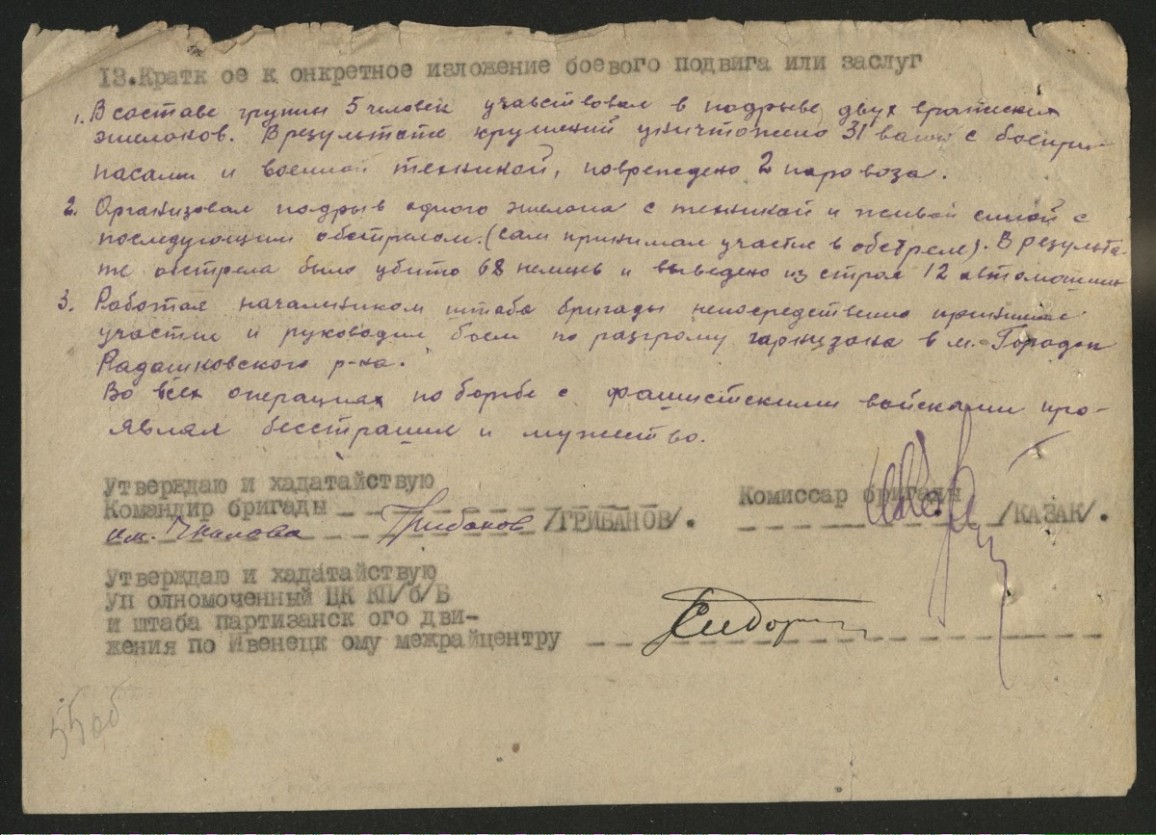 13.Кратк ое к онкретное изложение боевого подвига или заслуг
1. В составе группы 5 человек участвовал в подрыве двух вражеских
эшелонов. В результате крушений уничтожено 31 вагон с боепри-
пасами и военной техникой, повреждено 2 паровоза.
2. Организовал подрыв одного эшелона с техникой и живой силой с
последующим обстрелом. (сам принимал участие в обстреле). В результа-
те обстрела было убито 68 немцев и выведено из строя 12 автомашин
3. Работая начальником штаба бригады непосредственно принимал
участие и руководил боем по разгрому гарнизона в м. Городок
Радашковского р-на.
Во всех операциях по борьбе с фашистскими войсками про-
являл бесстрашие и мужество.
Утверждаю и хадатайствую
Командир бригады Комиссар бригады
им. Чкалова Грибанов /ГРИБАНОВ/. /КАЗАК/.
Утверждаю и хадатайствую
Уп олномоченный ЦК КП/б/Б
и штаба партизанск ого дви-
жения по Ивенецк ому межрайцентру
55об